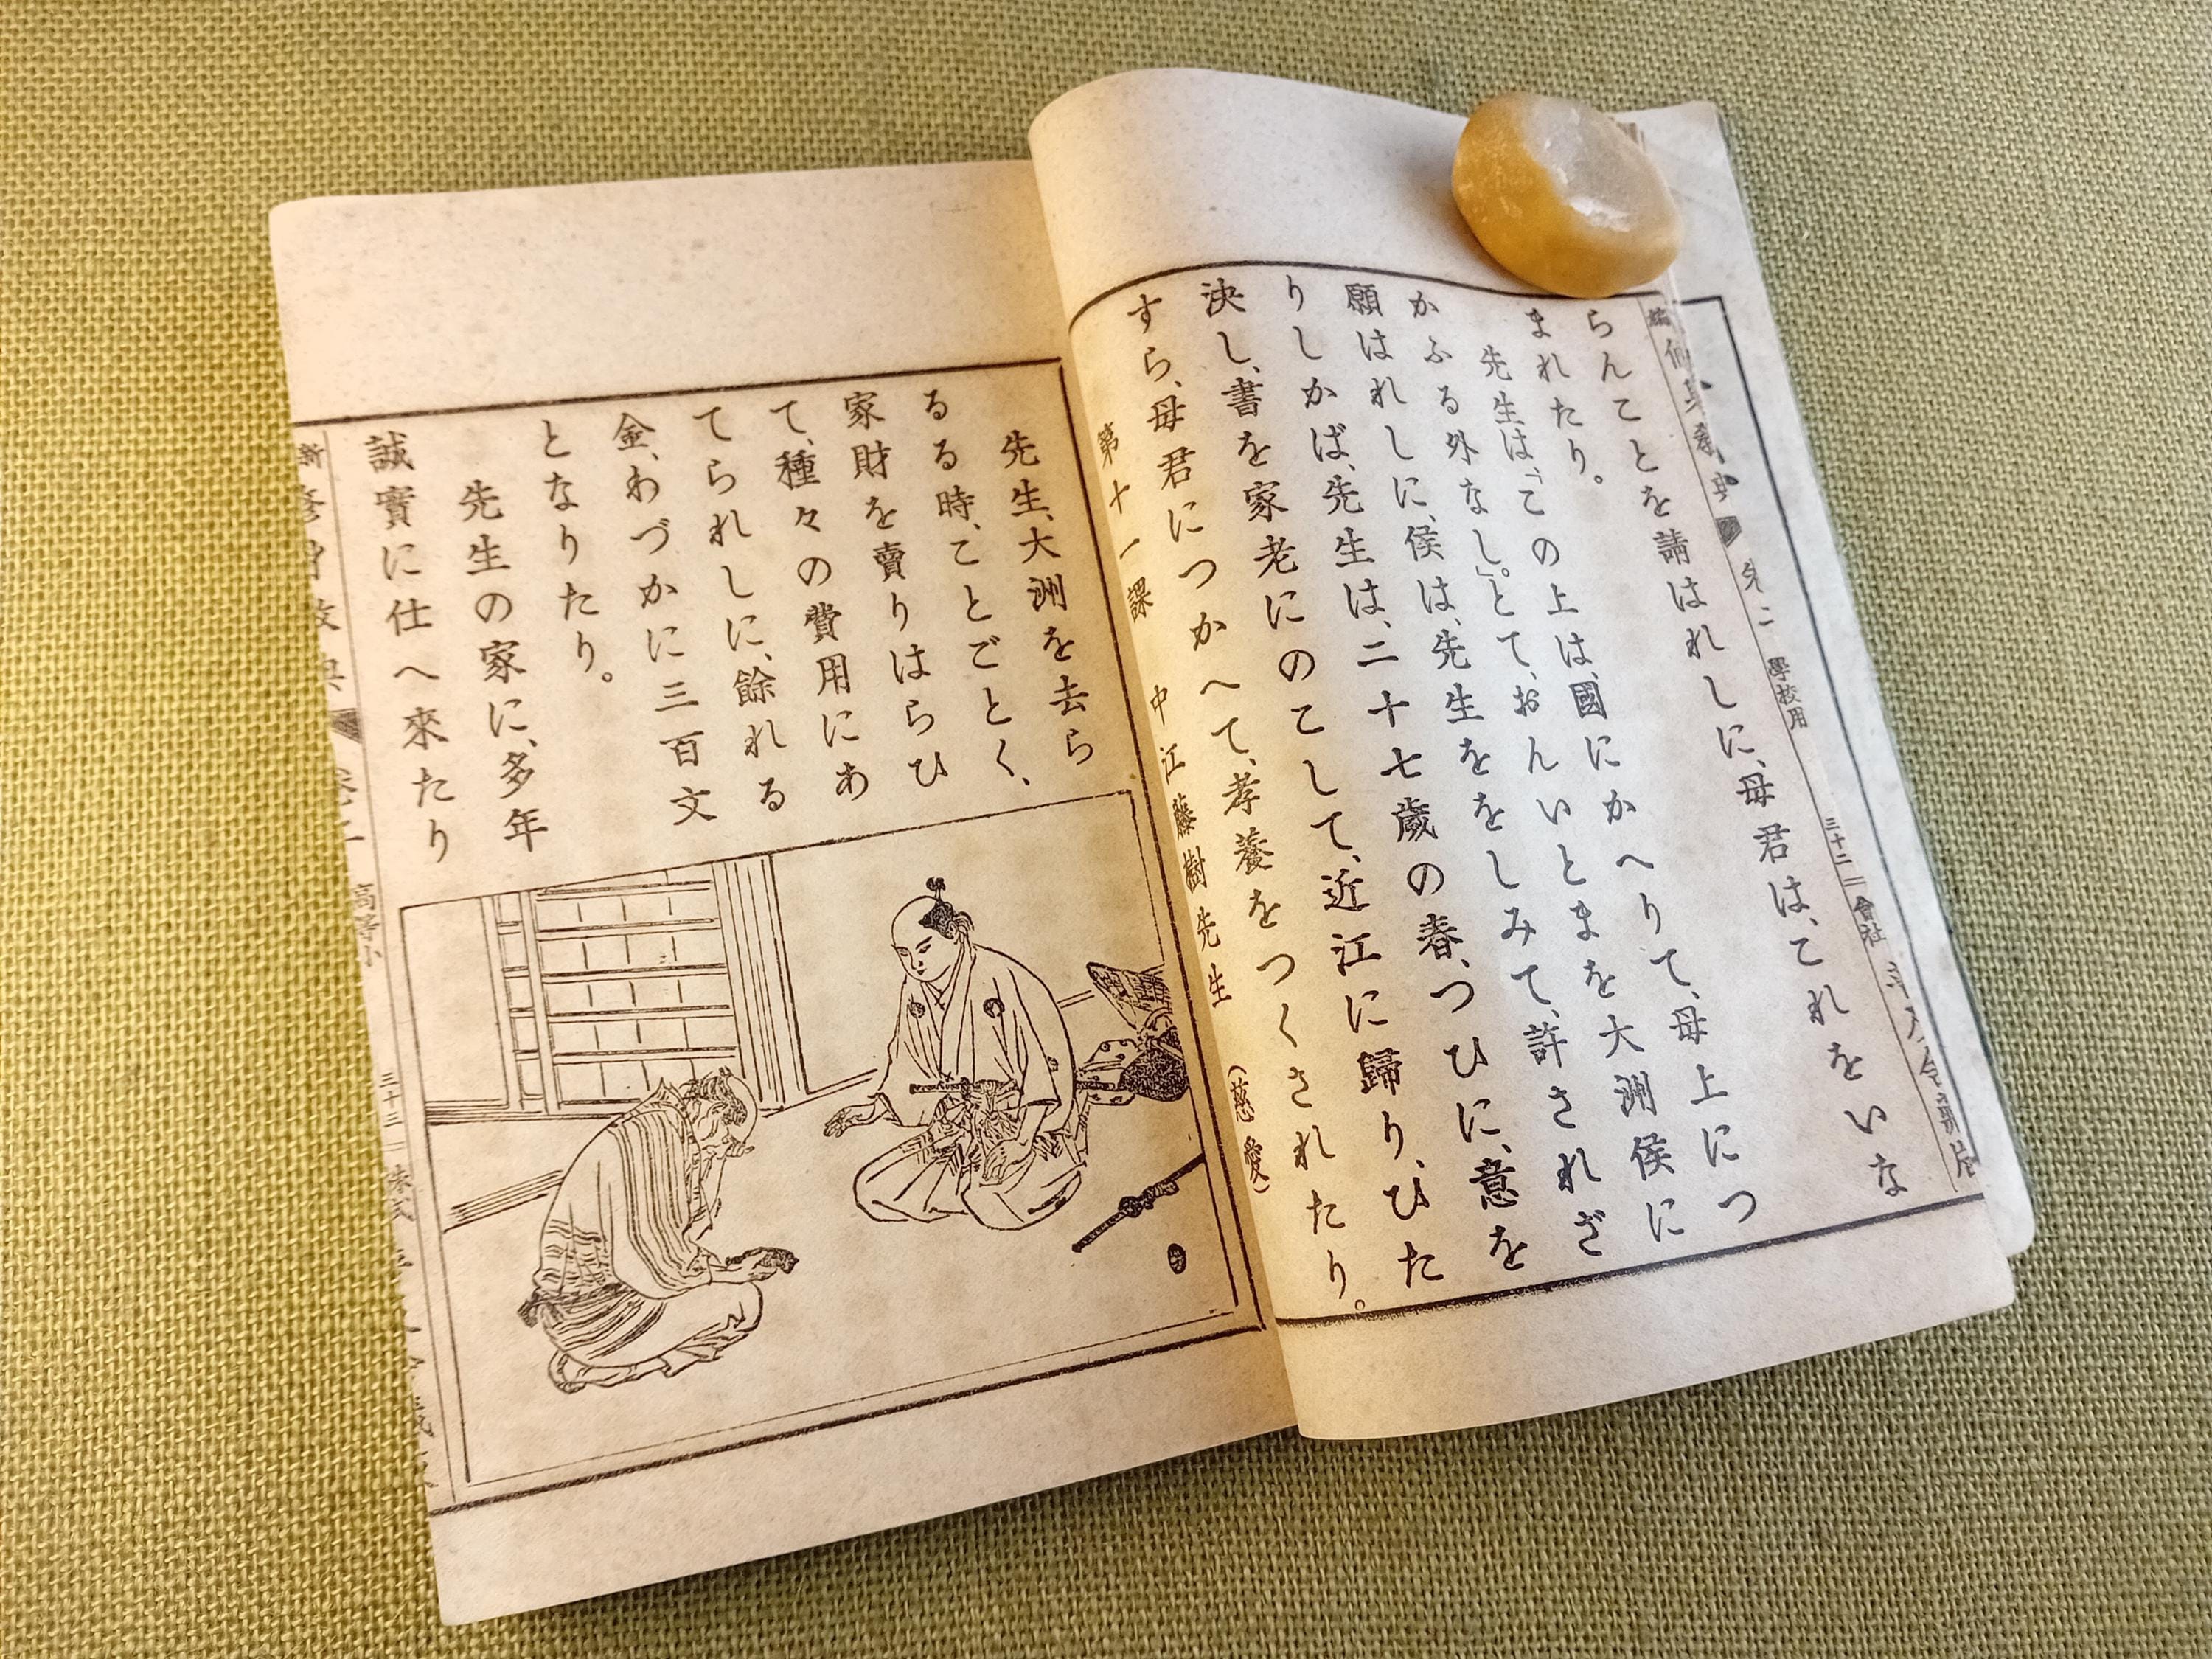 らんことを請はれしに、母君は、これをいな
まれたり。
先生は、「この上は、國にかへりて、母上につ
かふる外なし。」とて、おんいとまを大洲侯に
願はれしに、侯は、先生ををしみて、許されざ
りしかば、先生は、二十七歲の春、つひに、意を
決し、書を家老にのこして、近江に歸り、ひた
すら、母君につかへて、孝養をつくされたり。
第十一課 中江藤樹先生 (慈愛)
先生、大洲を去ら
るる時、ことごとく、
家財を賣りはらひ
て、種々の費用にあ
てられしに、餘れる
金、わづかに三百文
となりたり。
先生の家に、多年
誠實に仕へ來たり